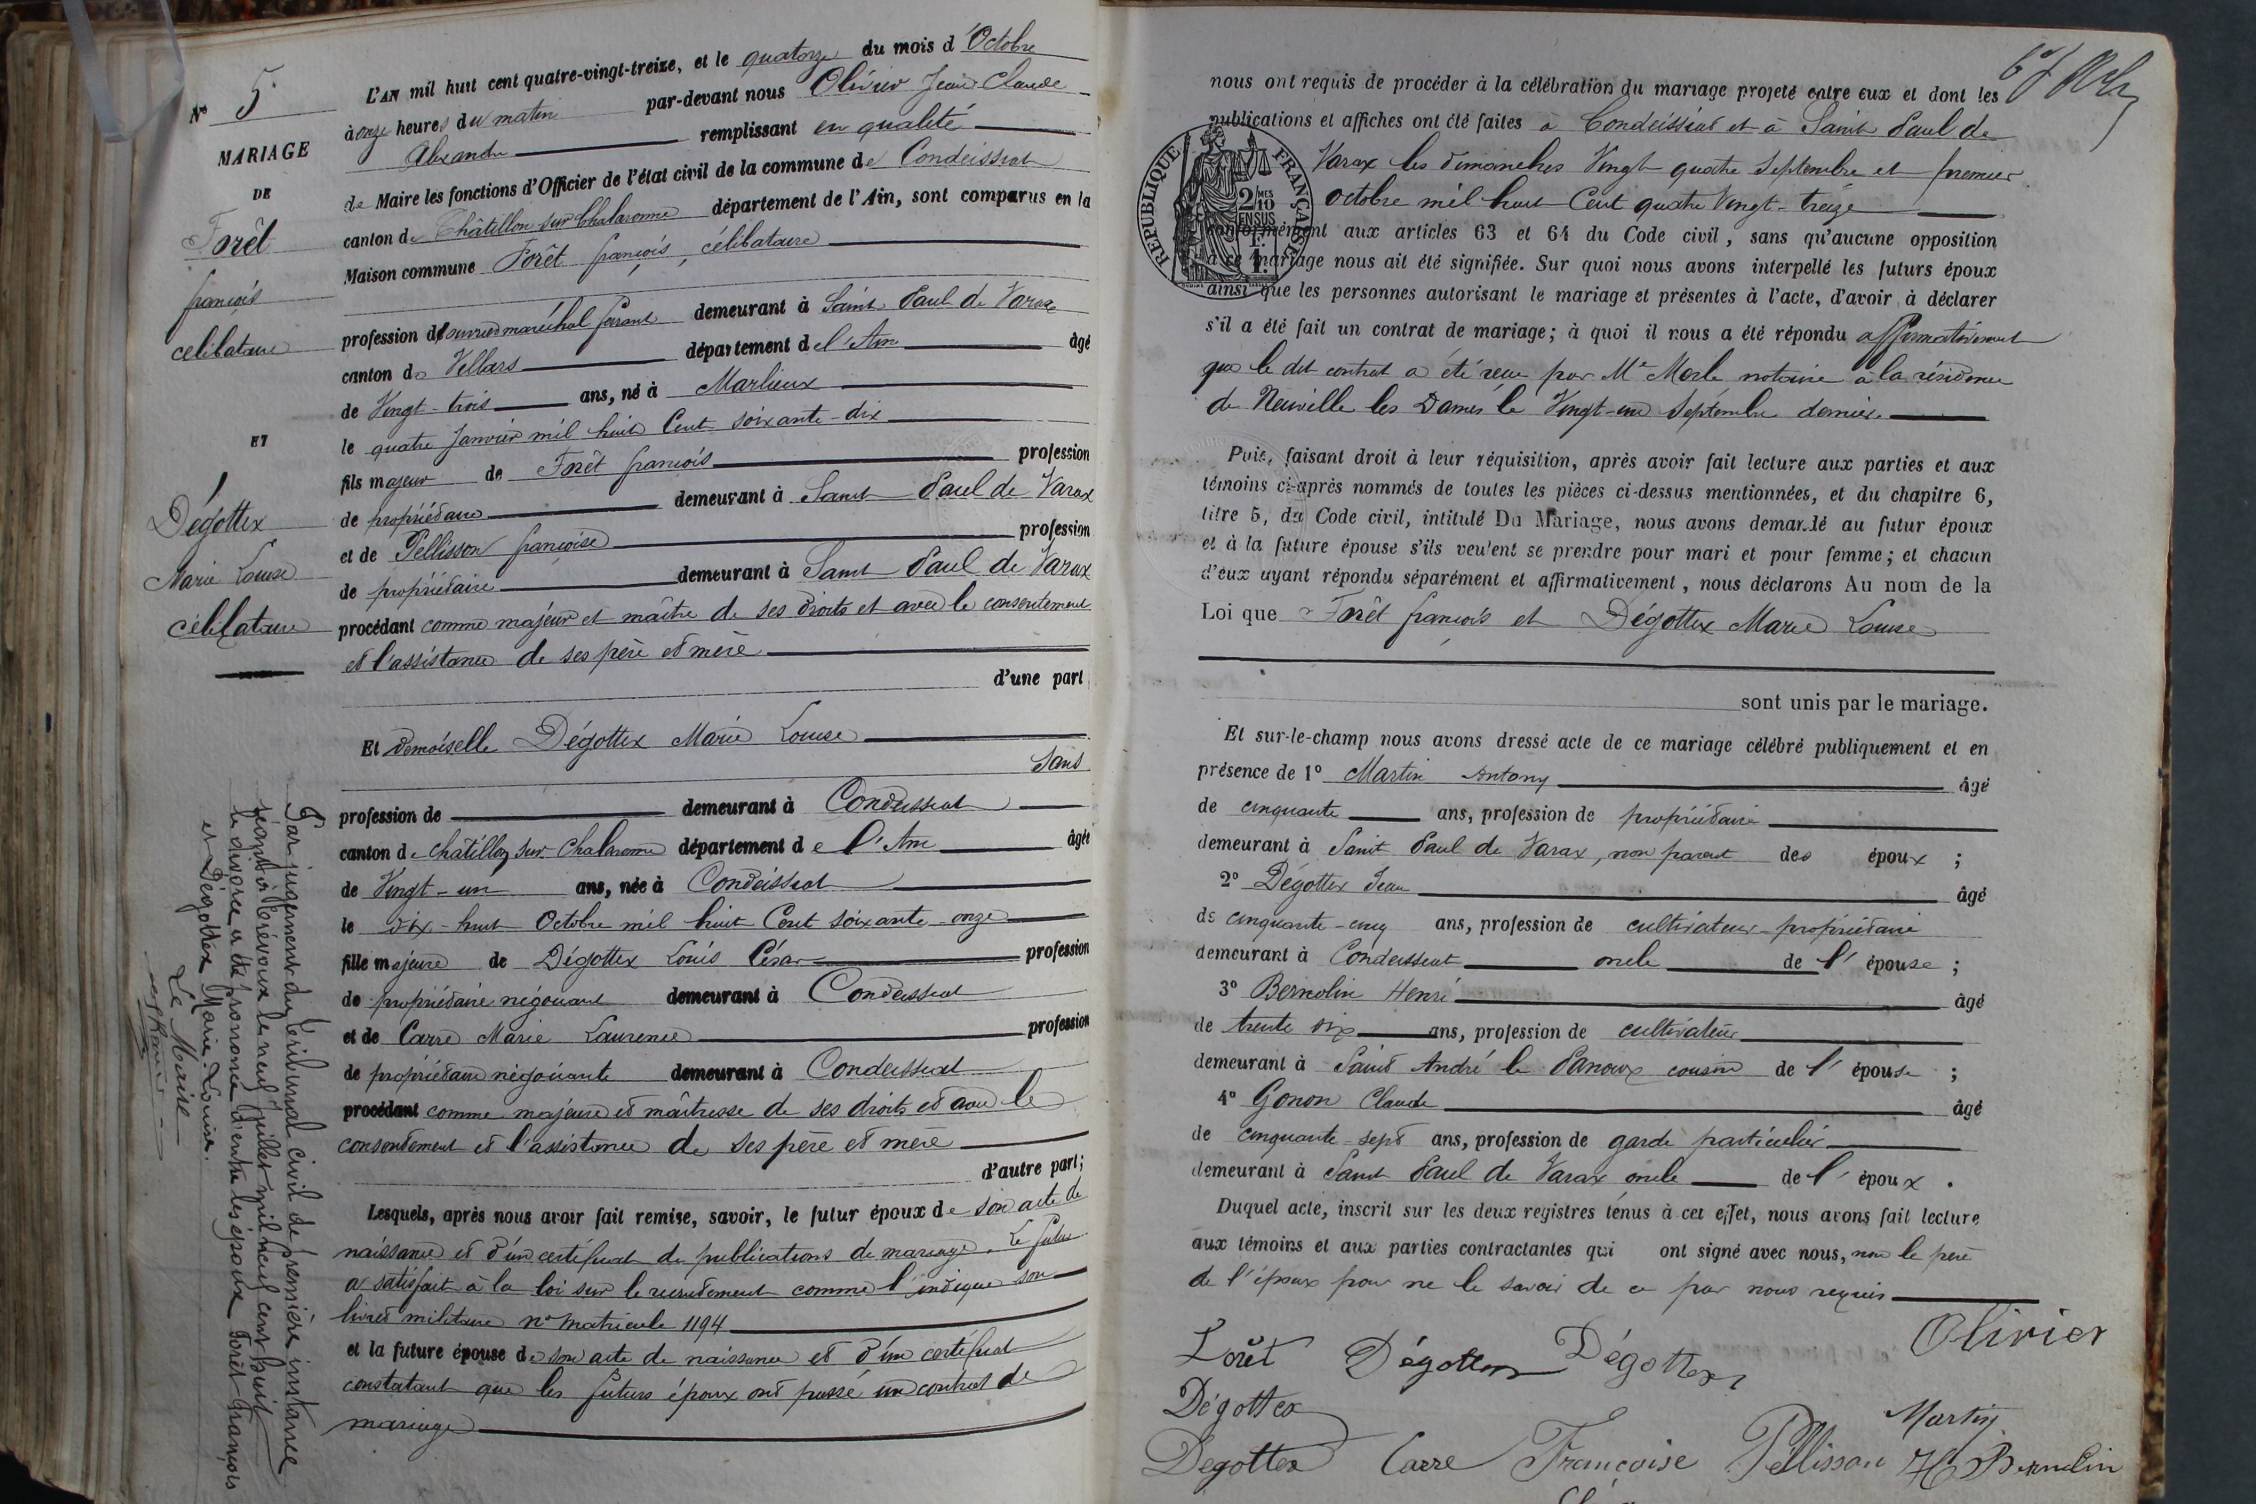 N° 5
MARIAGE
DE
Forêt
françois
célibataire
ET
Dégottex
Marie Louise
célibataire
Par jugement du tribunal civil de première instance
séant à Trévoux le neuf juillet mil neuf cent huit
le divorce a été prononcé d'entre les époux Forêt François
et Dégottex Marie-Louise.
Le Maire
L'AN mil huit cent quatre-vingt-treize, et le quatorze du mois d'Octobre
à onze heures du matin par-devant nous Olivier Jean Claude
Alexandre remplissant en qualité
de Maire les fonctions d'Officier de l'état civil de la commune de Condeissiat
canton de Châtillon sur Chalaronne département de l'Ain, sont comparus en la
Maison commune Forêt françois, célibataire
profession d'ouvrier maréchal ferrant demeurant à Saint Paul de Varax
canton de Villars département de l'Ain âgé
de Vingt-trois ans, né à Marlieux
le quatre Janvier mil huit Cent soixante-dix
fils majeur de Forêt françois profession
de propriétaire demeurant à Saint Paul de Varax
et de Pellisson françoise profession
de propriétaire demeurant à Saint Paul de Varax
procédant comme majeur et maître de ses droits et avec le consentement
et l'assistance de ses père et mère
d'une part
Et demoiselle Dégottex Marie Louise
Sans
profession de demeurant à Condeissiat
canton de chatillon sur Chalaronne département de l'Ain âgée
de Vingt-un ans, née à Condeissiat
le dix-huit Octobre mil huit Cent soixante-onze
fille majeure de Dégottex Louis César profession
de propriétaire négociant demeurant à Condeissiat
et de Carre Marie Laurence profession
de propriétaire négociante demeurant à Condeissiat
procédant comme majeure et maîtresse de ses droits et avec le
consentement et l'assistance de ses père et mère
d'autre part;
Lesquels, après nous avoir fait remise, savoir, le futur époux de son acte de
naissance et d'un certificat de publications de mariage. Le futur
a satisfait à la loi sur le recrutement comme l'indique son
livret militaire n° matricule 1194
et la future épouse de son acte de naissance et d'un certificat
constatant que les futurs époux ont passé un contrat de
mariage
nous ont requis de procéder à la célébration du mariage projeté entre eux et dont les
publications et affiches ont été faites à Condeissiat et à Saint Paul de
Varax les dimanches Vingt quatre Septembre et premier
octobre mil huit Cent quatre Vingt-treize
RÉPUBLIQUE FRANÇAISE
2/10 MES
EN SUS
1F.
conformément aux articles 63 et 64 du Code civil, sans qu'aucune opposition
à ce mariage nous ait été signifiée. Sur quoi nous avons interpellé les futurs époux
ainsi que les personnes autorisant le mariage et présentes à l'acte, d'avoir à déclarer
s'il a été fait un contrat de mariage; à quoi il nous a été répondu affirmativement
que le dit contrat a été reçu par Me Merle notaire à la résidence
de Neuville les Dames le Vingt-un Septembre dernier.
Puis, faisant droit à leur réquisition, après avoir fait lecture aux parties et aux
témoins ci-après nommés de toutes les pièces ci-dessus mentionnées, et du chapitre 6,
titre 5, du Code civil, intitulé Du Mariage, nous avons demandé au futur époux
et à la future épouse s'ils veulent se prendre pour mari et pour femme; et chacun
d'eux ayant répondu séparément et affirmativement, nous déclarons Au nom de la
Loi que Forêt françois et Dégottex Marie Louise
sont unis par le mariage.
Et sur-le-champ nous avons dressé acte de ce mariage célébré publiquement et en
présence de 1° Martin Antony âgé
de cinquante ans, profession de propriétaire
demeurant à Saint Paul de Varax, non parent des époux ;
2° Dégottex Jean âgé
de cinquante-cinq ans, profession de cultivateur-propriétaire
demeurant à Condeissiat oncle de l'épouse ;
3° Bernolin Henri âgé
de trente six ans, profession de cultivateur
demeurant à Saint André le Panoux cousin de l'épouse ;
4° Gonon Claude âgé
de cinquante-sept ans, profession de garde particulier
demeurant à Saint Paul de Varax oncle de l'époux.
Duquel acte, inscrit sur les deux registres tenus à cet effet, nous avons fait lecture
aux témoins et aux parties contractantes qui ont signé avec nous, non le père
de l'époux pour ne le savoir de ce par nous requis
Olivier
Forêt Dégottex Dégottex
Dégottex
Martin
Dégottex Carre Françoise Pellisson H Bernolin